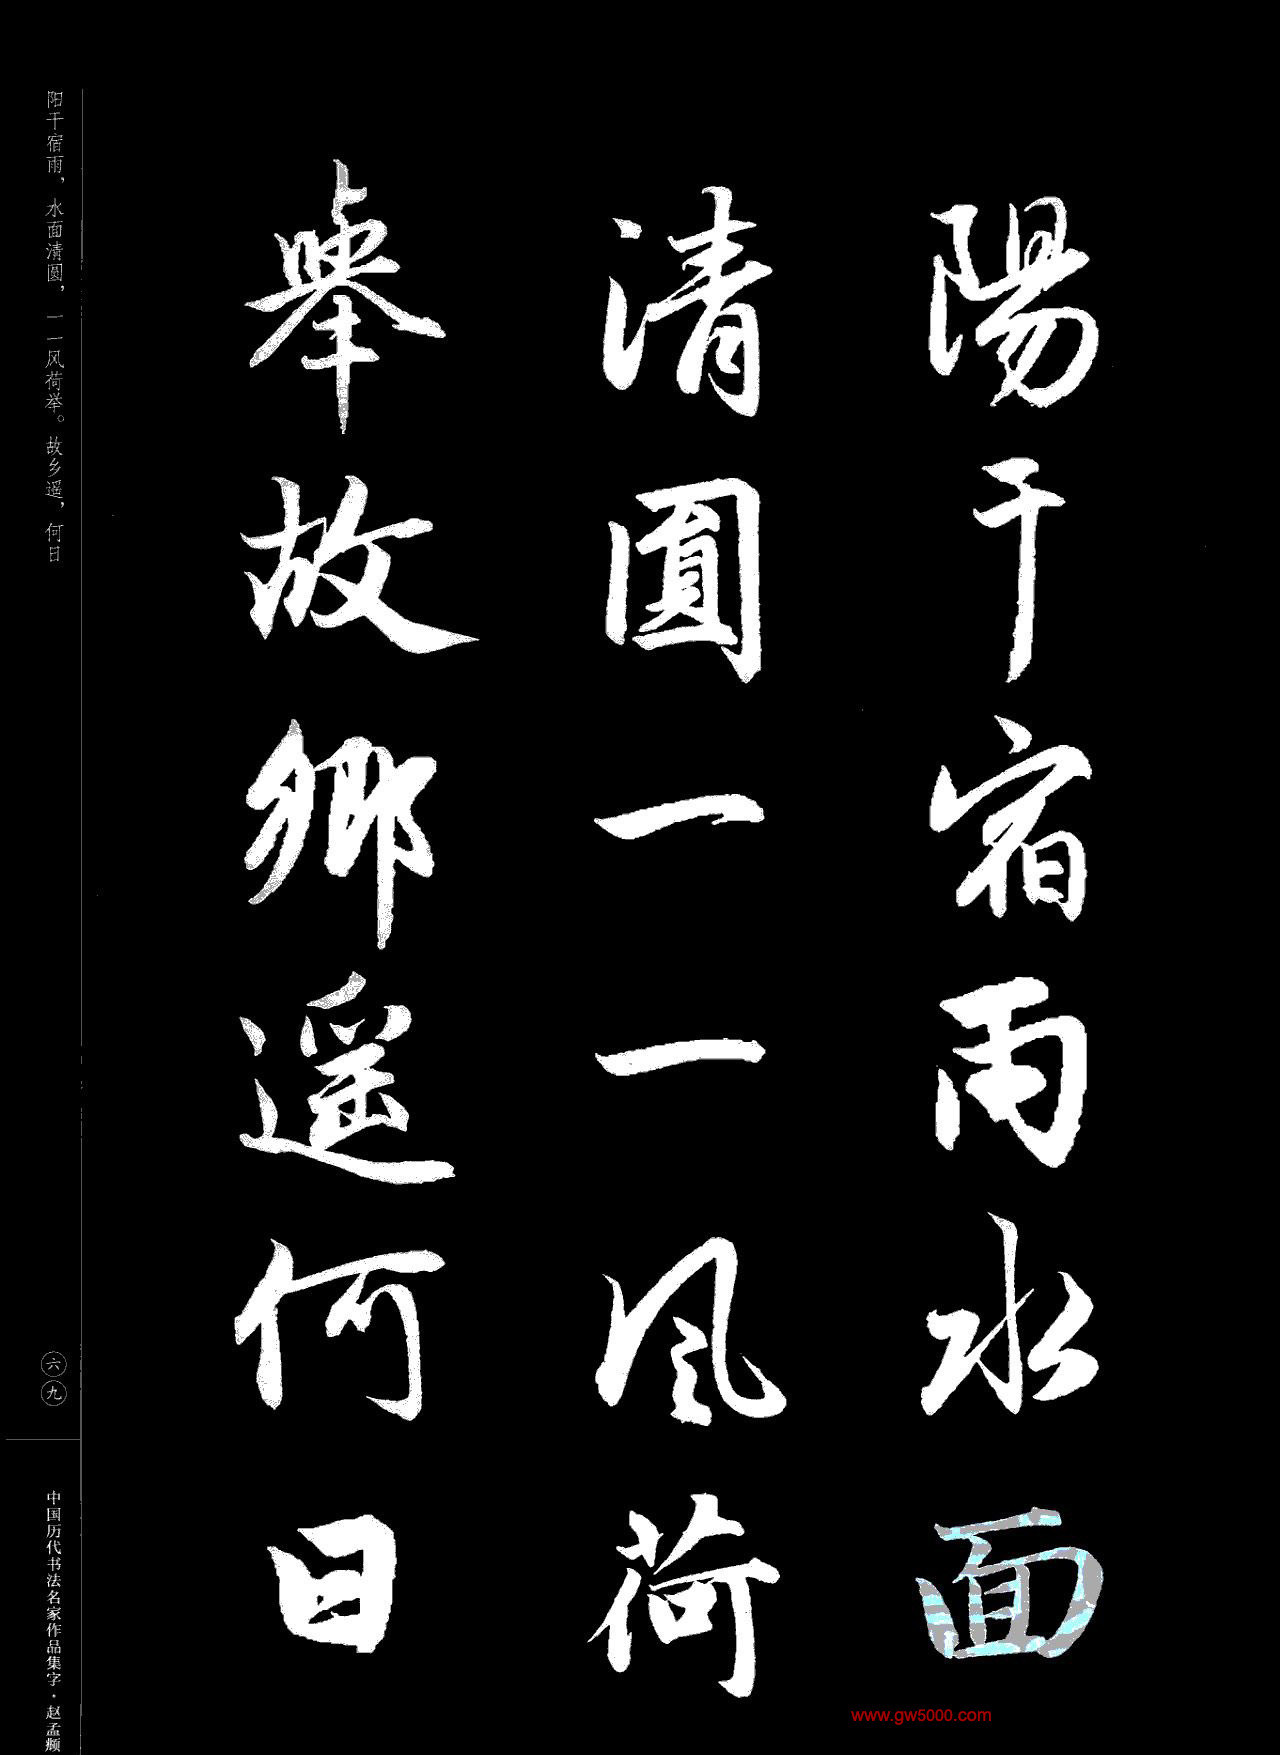 陽干宿雨水面
清圓一一風荷
舉故鄉遥何日
阳干宿雨，水面清圆，一一风荷举。故乡遥，何日
六九
中国历代书法名家作品集字·赵孟頫
www.gw5000.com